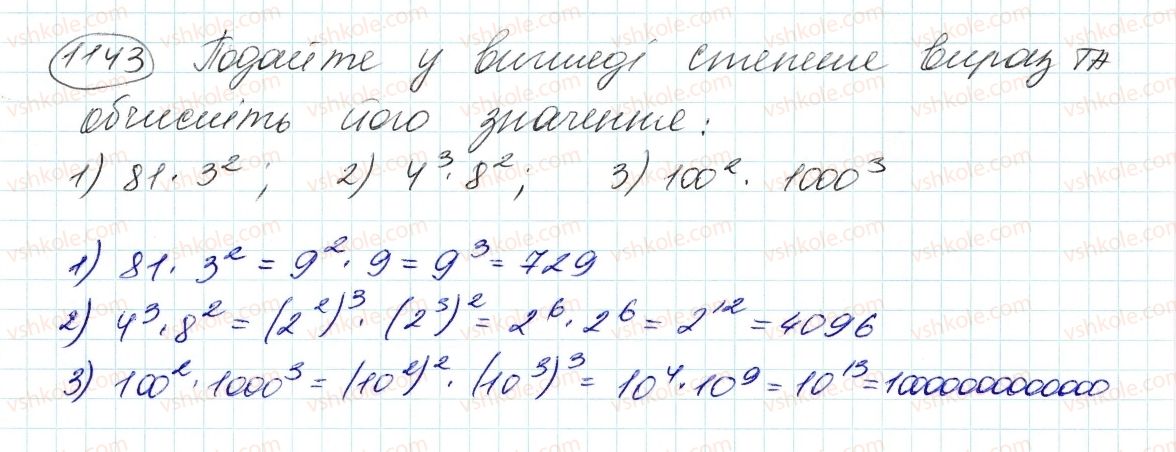 1143 Подайте у вигляді степеня вираз та
обчисліть його значення:
1) 81 · 3²; 2) 4³ · 8²; 3) 100² · 1000³
1) 81 · 3² = 9² · 9 = 9³ = 729
2) 4³ · 8² = (2²)³ · (2³)² = 2⁶ · 2⁶ = 2¹² = 4096
3) 100² · 1000³ = (10²)² · (10³)³ = 10⁴ · 10⁹ = 10¹³ = 10000000000000